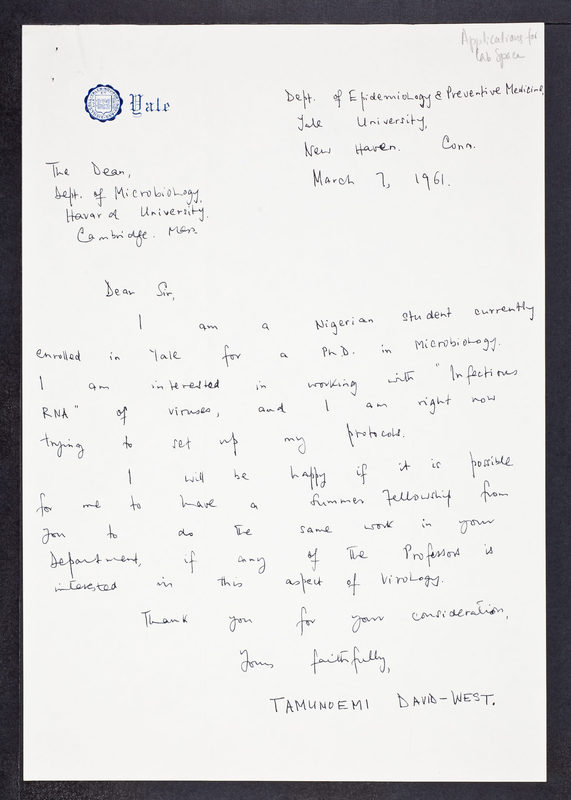 Applications for
Lab Space
Yale
Dept. of Epidemiology & Preventive Medicine,
Yale University,
New Haven. Conn.
March 7, 1961.
The Dean,
Dept. of Microbiology,
Havard University.
Cambridge. Mass
Dear Sir,
I am a Nigerian student currently
enrolled in Yale for a Ph.D. in Microbiology.
I am interested in working with "Infectious
RNA" of viruses, and I am right now
trying to set up my protocols.
I will be happy if it is possible
for me to have a summer fellowship from
you to do the same work in your
Department, if any of the Professors is
interested in this aspect of Virology.
Thank you for your consideration,
Yours faithfully,
TAMUNOEMI DAVID-WEST.